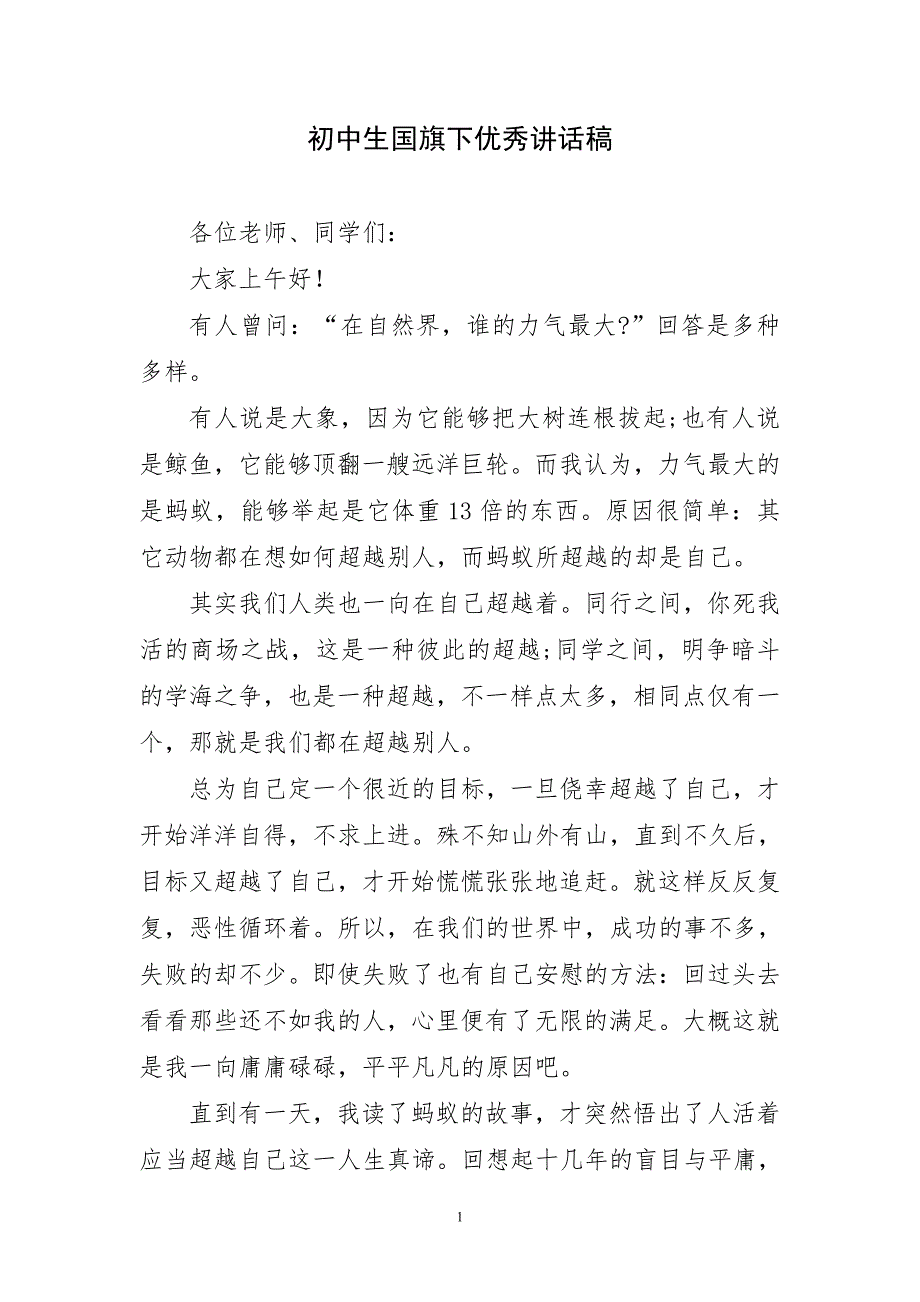 初中生国旗下优秀讲话稿
各位老师、同学们：
大家上午好！
有人曾问：“在自然界，谁的力气最大?”回答是多种
多样。
有人说是大象，因为它能够把大树连根拔起;也有人说
是鲸鱼，它能够顶翻一艘远洋巨轮。而我认为，力气最大的
是蚂蚁，能够举起是它体重 13 倍的东西。原因很简单：其
它动物都在想如何超越别人，而蚂蚁所超越的却是自己。
其实我们人类也一向在自己超越着。同行之间，你死我
活的商场之战，这是一种彼此的超越;同学之间，明争暗斗
的学海之争，也是一种超越，不一样点太多，相同点仅有一
个，那就是我们都在超越别人。
总为自己定一个很近的目标，一旦侥幸超越了自己，才
开始洋洋自得，不求上进。殊不知山外有山，直到不久后，
目标又超越了自己，才开始慌慌张张地追赶。就这样反反复
复，恶性循环着。所以，在我们的世界中，成功的事不多，
失败的却不少。即使失败了也有自己安慰的方法：回过头去
看看那些还不如我的人，心里便有了无限的满足。大概这就
是我一向庸庸碌碌，平平凡凡的原因吧。
直到有一天，我读了蚂蚁的故事，才突然悟出了人活着
应当超越自己这一人生真谛。回想起十几年的盲目与平庸，
1